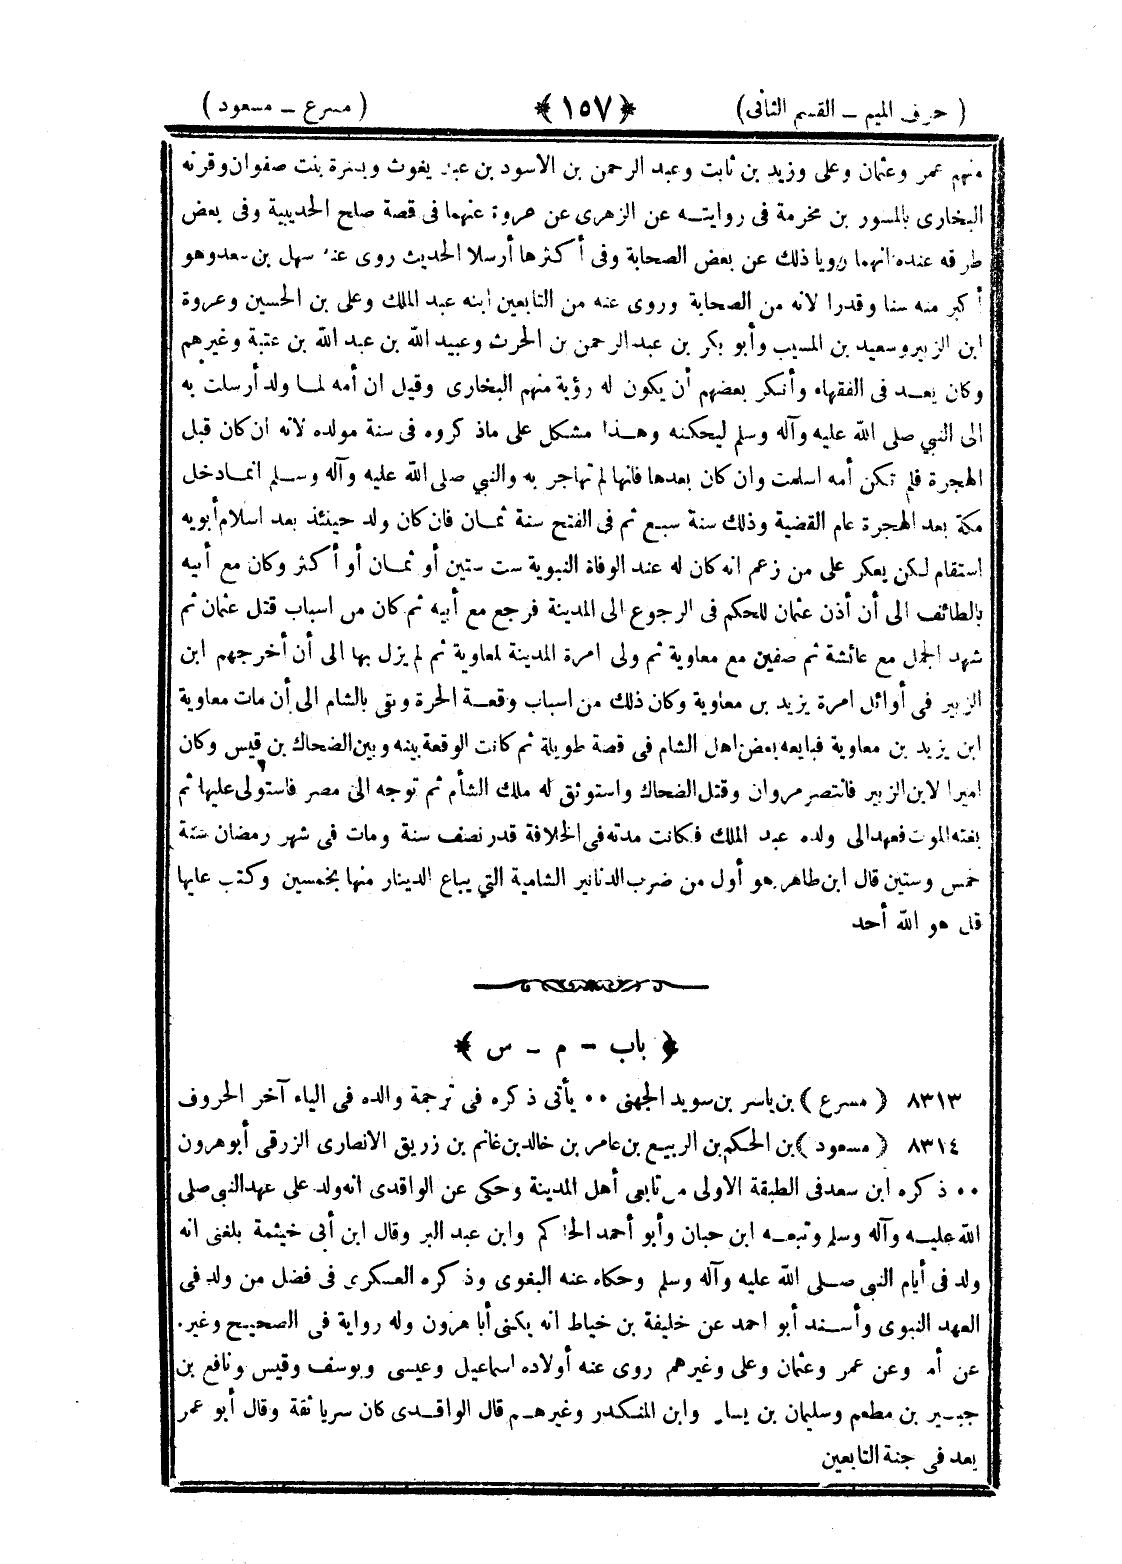 ( حرف الميم ــ القسم الثانى ) ﴿ ١٥٧ ﴾ ( مسرع ــ مسعود )
منهم عمر وعثمان وعلى وزيد بن ثابت وعبد الرحمن بن الاسود بن عبد يغوث وبسرة بنت صفوان وقرنه
البخارى بالمسور بن مخرمة فى روايتــه عن الزهرى عن عروة عنهما فى قصة صلح الحديبية وفى بعض
طرقه عنده انهما رويا ذلك عن بعض الصحابة وفى أكثرها أرسلا الحديث روى عنه سهل بن سعد وهو
أكبر منه سنا وقدرا لانه من الصحابة وروى عنه من التابعين ابنه عبد الملك وعلى بن الحسين وعروة
ابن الزبير وسعيد بن المسيب وأبو بكر بن عبد الرحمن بن الحرث وعبيد الله بن عبد الله بن عتبة وغيرهم
وكان يعــد فى الفقهاء وأنكر بعضهم أن يكون له رؤية منهم البخارى وقيل ان أمه لمـا ولد أرسلت به
الى النبي صلى الله عليه وآله وسلم ليحكنه وهــذا مشكل على ماذكروه فى سنة مولده لانه ان كان قبل
الهجرة فلم تكن أمه اسلمت وان كان بعدها فانها لم تهاجر به والنبي صلى الله عليه وآله وسـلم انمـا دخل
مكة بعد الهجرة عام القضية وذلك سنة سبع ثم فى الفتح سنة ثمـان فان كان ولد حينئذ بعد اسلام أبويه
استقام لكن يعكر على من زعم انه كان له عند الوفاة النبوية ست سنين أو ثمـان أو أكثر وكان مع أبيه
بالطائف الى أن أذن عثمان للحكم فى الرجوع الى المدينة فرجع مع أبيه ثم كان من اسباب قتل عثمان ثم
شهد الجمل مع عائشة ثم صفين مع معاوية ثم ولى امرة المدينة لمعاوية ثم لم يزل بها الى أن أخرجهم ابن
الزبير فى أوائل امرة يزيد بن معاوية وكان ذلك من اسباب وقعــة الحرة وبقى بالشام الى أن مات معاوية
ابن يزيد بن معاوية فبايعه بعض اهل الشام فى قصة طويلة ثم كانت الوقعة بينه وبين الضحاك بن قيس وكان
اميرا لابن الزبير فانتصر مروان وقتل الضحاك واستوثق له ملك الشأم ثم توجه الى مصر فاستولى عليها ثم
بغته الموت فعهد الى ولده عبد الملك فكانت مدته فى الخلافة قدر نصف سنة ومات فى شهر رمضان سنة
خمس وستين قال ابن طاهر هو أول من ضرب الدنانير الشامية التي يباع الدينار منها بخمسين وكتب عليها
قل هو الله أحد
﴿ باب – م ــ س ﴾
٨٣١٣ ( مسرع ) بن ياسر بن سويد الجهنى ٠٠ يأتى ذكره فى ترجمة والده فى الياء آخر الحروف
٨٣١٤ ( مسعود ) بن الحكم بن الربيع بن عامر بن خالد بن غانم بن زريق الانصارى الزرقى أبو هرون
٠٠ ذكره ابن سعد فى الطبقة الاولى من تابعى أهل المدينة وحكى عن الواقدى انه ولد على عهد النبى صلى
الله عليــه وآله وسلم وتبعــه ابن حبان وأبو أحمد الحاكم وابن عبد البر وقال ابن أبى خيثمة بلغنى انه
ولد فى أيام النبى صــلى الله عليه وآله وسلم وحكاه عنه البغوى وذكره العسكرى فى فضل من ولد فى
العهد النبوى وأسـند أبو احمد عن خليفة بن خياط انه يكنى أبا هرون وله رواية فى الصحيح وغيره
عن أمه وعن عمر وعثمان وعلى وغيرهم روى عنه أولاده اسماعيل وعيسى ويوسف وقيس ونافع بن
جبـير بن مطعم وسليمان بن يسار وابن المنكدر وغيرهــم قال الواقــدى كان سريا ثقة وقال أبو عمر
يعد فى جنة التابعين